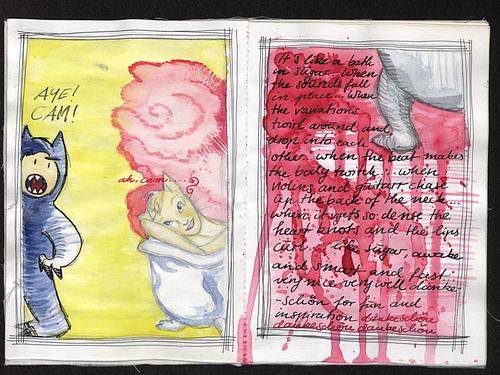 AYE!
CAM!
ah, cam....
It's like a bath
in sugar... when
the sounds fall
in place... when
the variations
twirl around and
drop into each
other. when the beat makes
the body twitch... when
violins and guitarr chase
up the back of the neck...
when it gets so dense the
heart knots and the lips
curl. like sugar, awake
and smart and fast.
very nice very well danke-
-schön for fun and
inspiration dankeschön
dankeschön dankeschön